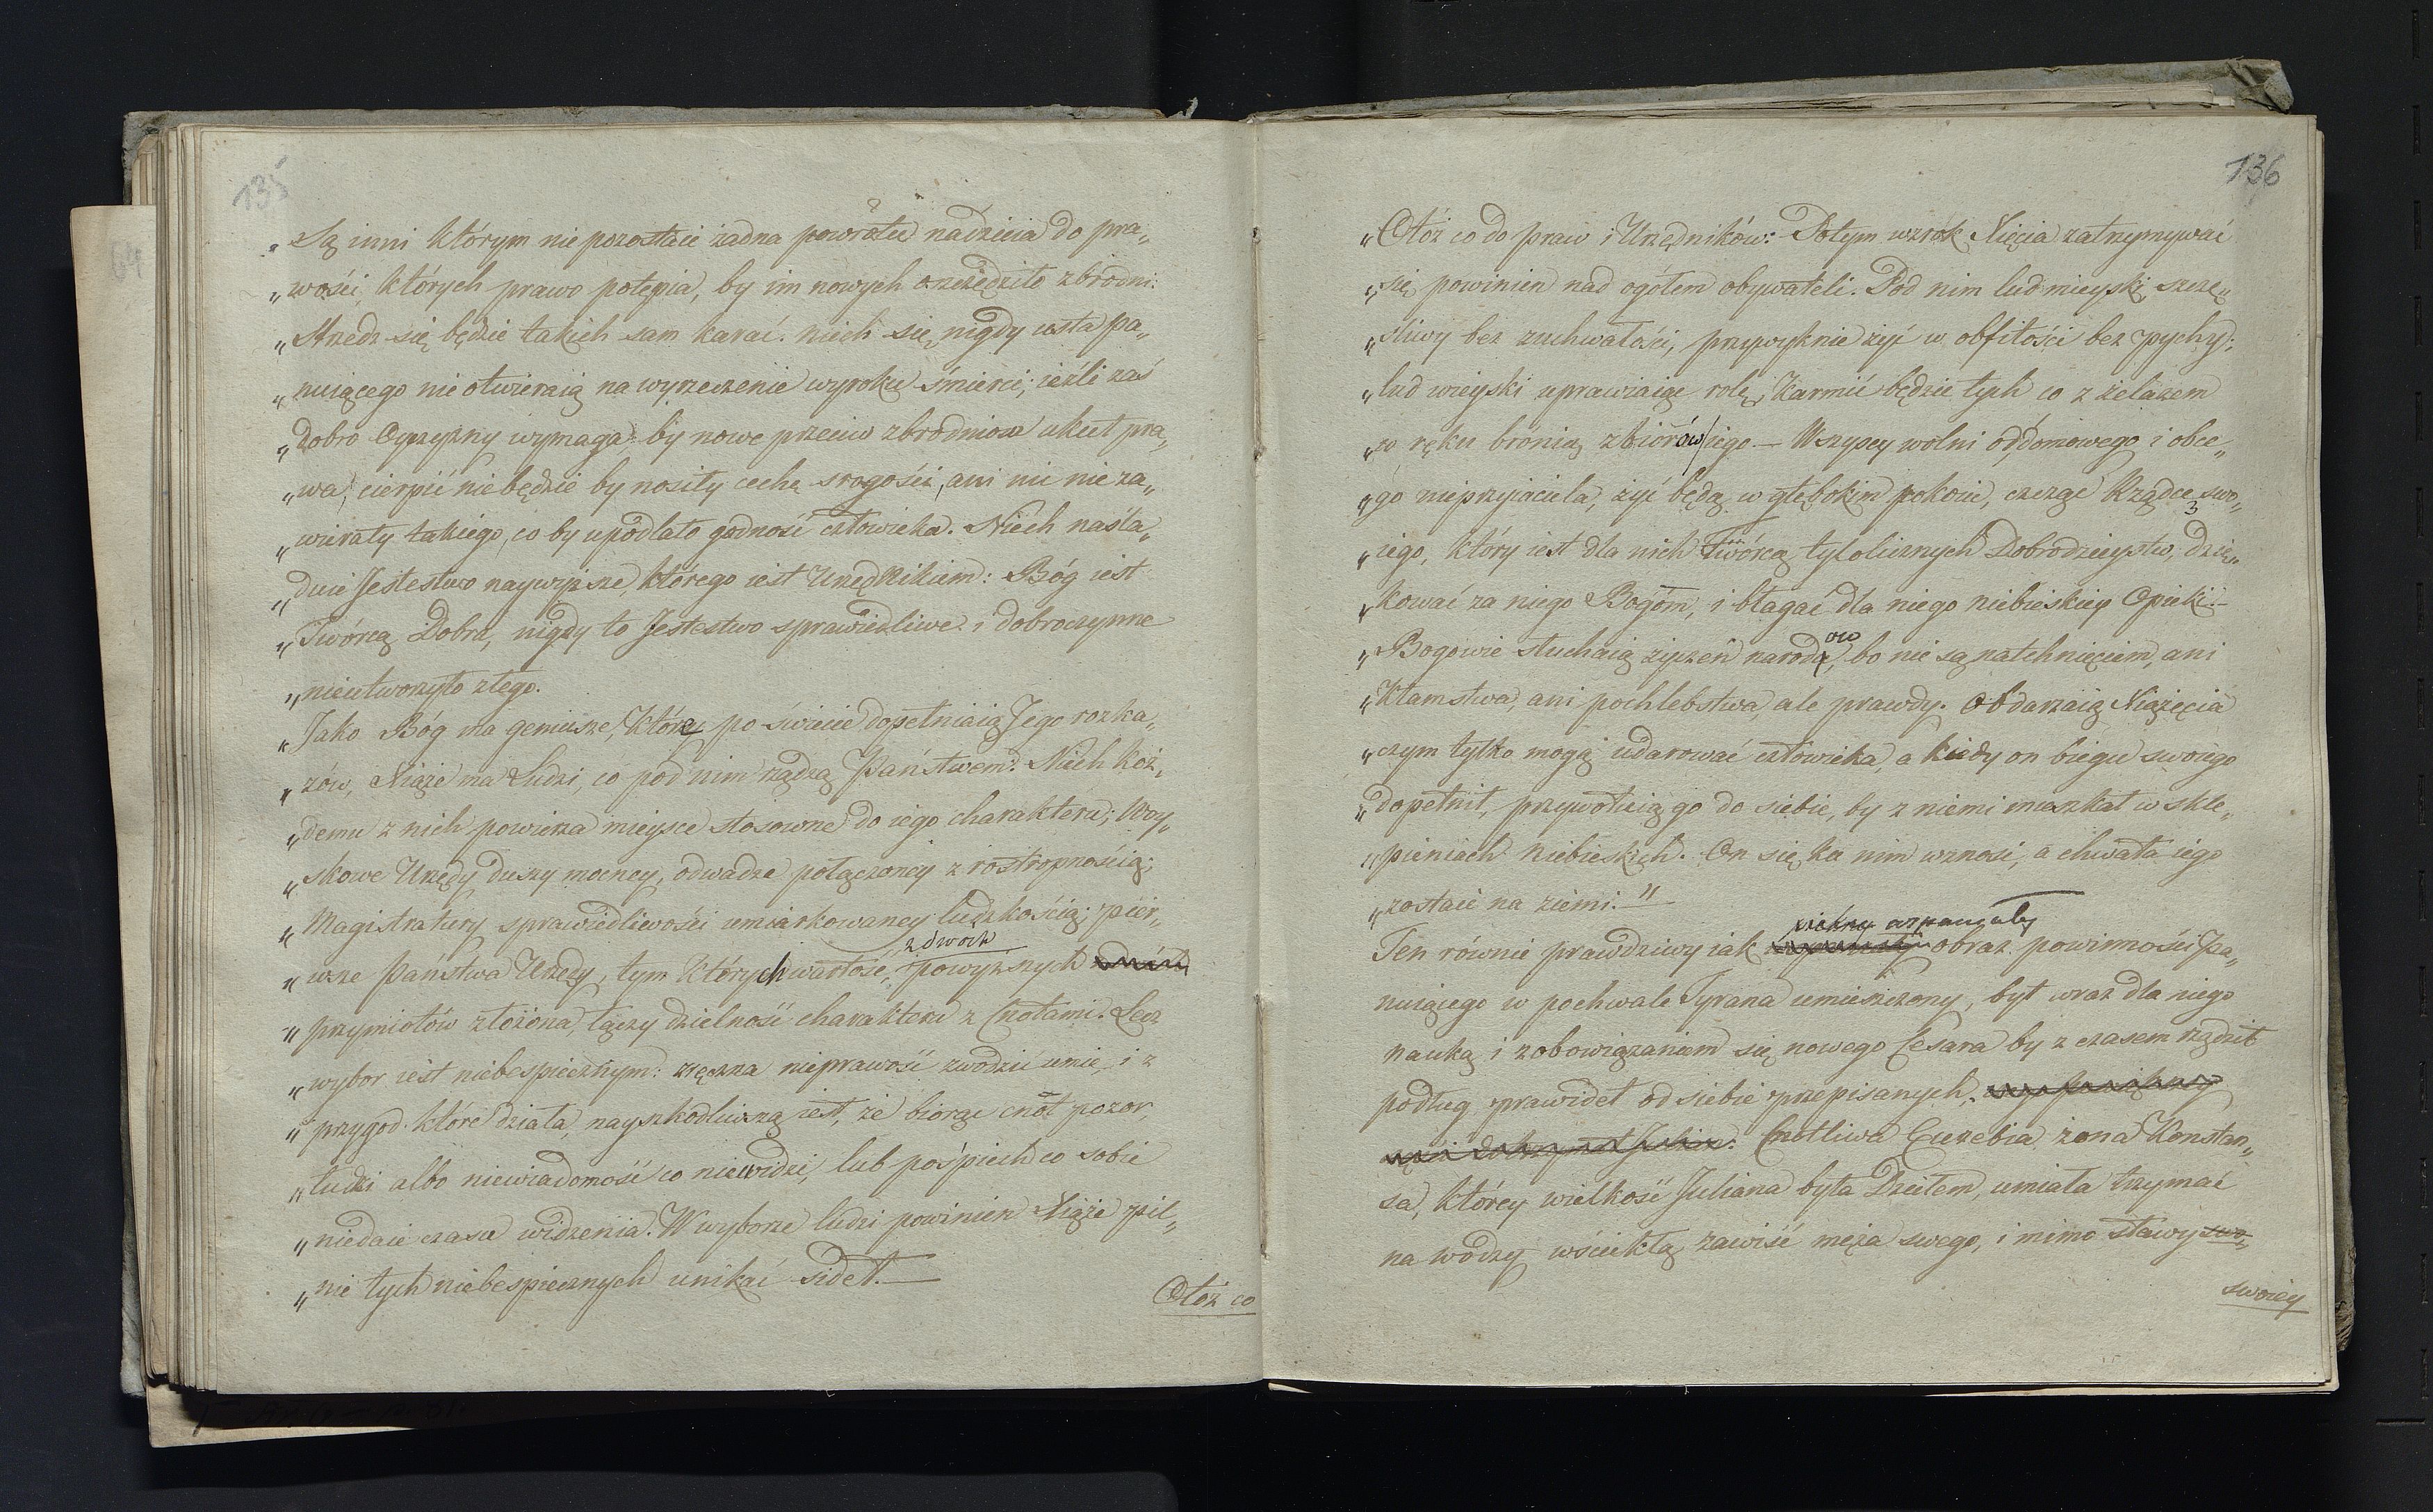 135
„Są inni którym nie pozostaie żadna powrótu nadzieia do pra„
„wości, których prawo potępia, by im nowych oszczędziło zbrodni:
„Strzedz się będzie takich sam karać. niech się nigdy usta pa„
„nuiącego nie otwieraią na wyrzeczenie wyroku śmierci; ieżli zaś
„dobro Oyczyzny wymaga by nowe przeciw zbrodniom ukuł pra„
„wa, cierpić niebędzie by nosiły cechę srogości, ani nic nie za„
„wierały takiego, co by upódlało godność człowieka. Niech naśla„
„duie Jestestwo naywyższe, którego iest Urzędnikiem: Bóg iest
„Twórcą Dobra, nigdy to Jestestwo sprawiedliwe i dobroczynne
„nieutworzyło złego.
„Jako Bóg ma geniusze, które po świecie dopełniaią Jego rozka„
„zów, Xiąże ma Ludzi, co pod nim rządzą Państwem. Niech każ„
„demu z nich powierza mieysce stosowne do iego charakteru; Woy„
„skowe Urzędy duszy mocney, odwadze połączoney z rostropnością;
„Magistratury sprawiedliwości umiarkowaney ludzkością; pier„
z dwóch
„wsze Państwa Urzędy, tym których wartość, powyższych
„przymiotów złożona, łączy dzielność charakteru z Cnotami. Lecz
„wybor iest niebespiecznym: zręczna nieprawość zwodzić umie, i z
„przygod które działa, nayszkodliwszą iest, że biorąc cnót pozor,
„łudzi albo niewiadomość co niewidzi, lub pośpiech co sobie
„niedaie czasu widzenia. W wyborze ludzi powinien Xiąże pil„
„nie tych niebespiecznych unikać sideł.—
Otóż co
136
„Otóż co do praw i Urzędników: Potym wzrok Xięcia zatrzymywać
„się powinien nad ogółem obywateli. Pod nim lud mieyski szczę„
„śliwy bez zuchwałości, przywyknie żyć w obfitości bez pychy;
„lud wieyski uprawiaiąc rolę, karmić będzie tych co z żelazem
„w ręku brónią zbiorów iego — Wszyscy wolni od domowego i obce„
„go nieprzyiaciela, żyć będą w głębokim pokoiu, czcząc Rządcę swo„
„iego, który iest dla nich Twórcą tyloliczny ch Dobrodzieystw, dzię„
„kować za niego Bogóm, i błagać dla niego niebieskiey Opieki:—
ow
„Bogowie słuchaią życzeń naroda, bo nie są natchnięciem, ani
„kłamstwa, ani pochlebstwa, ale prawdy. Obdarzaią Xiążęcia
„czym tylko mogą udarować człowieka, a kiedy on biegu swoiego
„dopełnił, przywołuią go do siebie, by z niemi mieszkał w skle„
„pieniach Niebieskich. On się ku nim wznosi, a chwała iego
„zostaie na ziemi."
piękny wspaniały
Ten równie prawdziwy iak wspaniały obraz powinności Pa„
nuiącego w pochwale Tyrana umieszczony, był wraz dla niego
nauką i zobowiązaniem się nowego Cesara by z czasem rządził
podług prawideł od siebie przepisanych.
Cnotliwa Euzebia żona Konstan„
sa, którey wielkość Juliana była Dziełem, umiała trzymać
na wodzy wściekłą zawiść męża swego, i mimo sławy swo„
swoiey